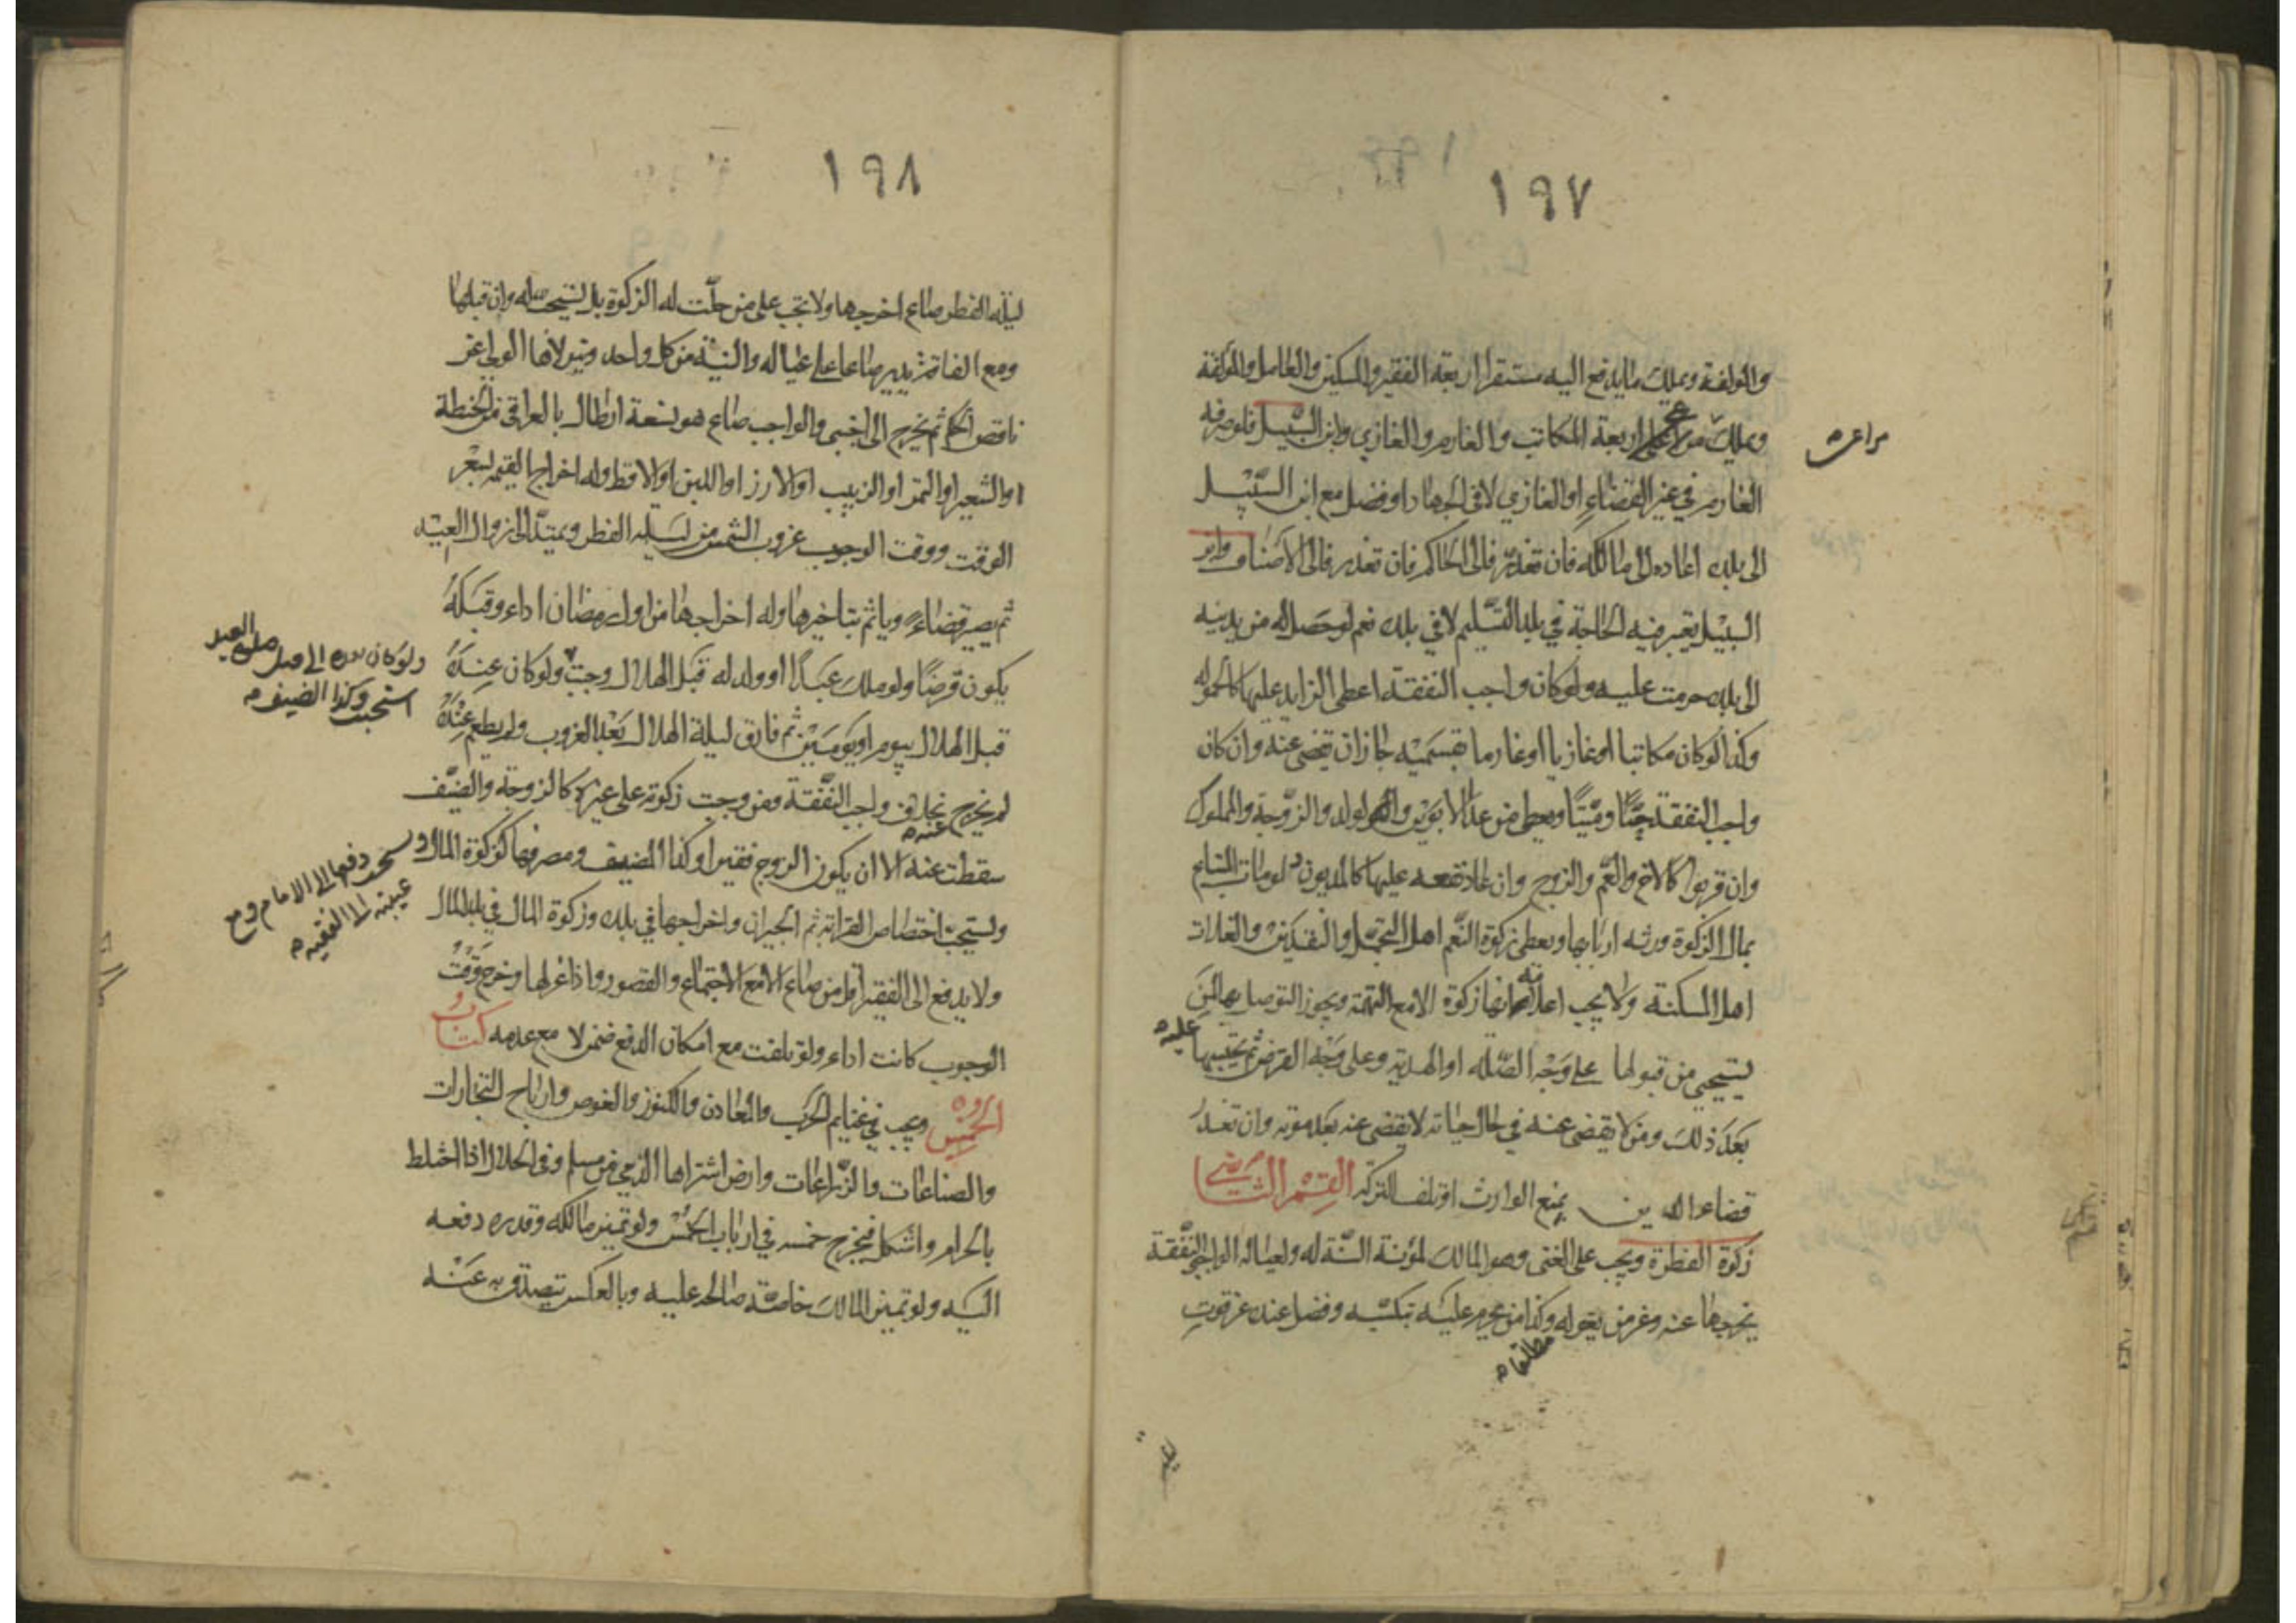 ١٩٧
والمولفة ويملك ما يدفع اليه مستقرا اربعة الفقير والمسكين والعامل والمولفة
ويملك مراعى اربعة المكاتب والغارم والغازي وابن السبيل فلو صرفه
مراعى
الغارم في غير القضاء او الغازي لا في الجهاد او فضل مع ابن السبيل
الى بلده اعاده الى مالكه فان تعذر فالى الحاكم فان تعذر فالى الاصناف وابن
السبيل يعتبر فيه الحاجة في بلد التسليم لا في بلده نعم لو حصل له من يدينه
الى بلده حرمت عليه ولو كان واجب النفقة اعطى الزايد عليها كالحمولة
وكذا لو كان مكاتبا او غازيا او غارما بقسميه جاز ان يقضى عنه وان كان
واجب النفقة حيًّا وميّتًا ويعطى من عدا الابوين والولد والزوجة والمملوك
وان قربوا كالاخ والعم والزوج وان عاد نفعه عليها كالمديون ولو مات المبتاع
بمال الزكوة ورثه اربابها ويعطى زكوة النعم اهل التجمل والنقدين والغلات
اهل المسكنة ولا يجب اعلامه انها زكوة الا مع التهمة ويجوز التوصل بها الى من
يستحيي من قبولها على وجه الصلة او الهدية وعلى وجه القرض ثم يحتسبها
عليه
بعد ذلك ومن لا يقضى عنه في حال حياته لا يقضى عنه بعد موته وان تعذر
قضاء الدين بمنع الوارث او تلف التركة القسم الثاني
زكوة الفطرة ويجب على الغنى وهو المالك لمؤنة السنة له ولعياله الواجبي النفقة
يخرجها عنه وعن من يعوله وكذا من يحرم عليه بتكسبه وفضل عنده عن قوت
مطالعه
١٩٨
ليلة الفطر صاع اخرجها ولا تجب على من حلّت له الزكوة بل تستحب له وان قبلها
ومع الفاقة يدير صاعا على عياله والنية من كل واحد ويتولاها الولي عن
ناقص الحكم ثم يخرج الى اجنبي والواجب صاع هو تسعة ارطال بالعراقي من الحنطة
او الشعير او التمر او الزبيب او الارز او اللبن او الاقط وله اخراج القيمة بسعر
الوقت ووقت الوجوب غروب الشمس من ليلة الفطر ويمتد الى زوال العيد
ثم يصير قضاء ويأثم بتاخيرها وله اخراجها من اول رمضان اداء وقبله
يكون قرضًا ولو ملك عبدًا او ولد له قبل الهلال وجبت ولو كان عنده
ولو كان الى قبل صلوة العيد
استحبت وكذا الضيف
قبل الهلال بيوم او يومين ثم فارق ليلة الهلال بعد الغروب ولم يطعم عنده
لم يخرج عنه بخلاف واجب النفقة ومن وجبت زكوته على غيره كالزوجة والضيف
سقطت عنه الا ان يكون الزوج فقيرا وكذا المضيف ومصرفها كزكوة المال
ويستحب دفعها الى الامام ومع
غيبته الى الفقيه
ويستحب اختصاص القرابة ثم الجيران واخراجها في بلده وزكوة المال في بلد المال
ولا يدفع الى الفقير اقل من صاع الا مع الاجتماع والقصور واذا عزلها وخرج وقت
الوجوب كانت اداء ولو تلفت مع امكان الدفع ضمن لا مع عدمه كتاب
الخمس ويجب في غنايم الحرب والمعادن والكنوز والغوص وارباح التجارات
والصناعات والزراعات وارض اشتراها الذمي من مسلم وفي الحلال اذا اختلط
بالحرام واشكل فيخرج خمسه في ارباب الخمس ولو تميز مالكه وقدره دفعه
اليه ولو تميز المالك خاصة صالحه عليه وبالعكس يتصدق به عنه